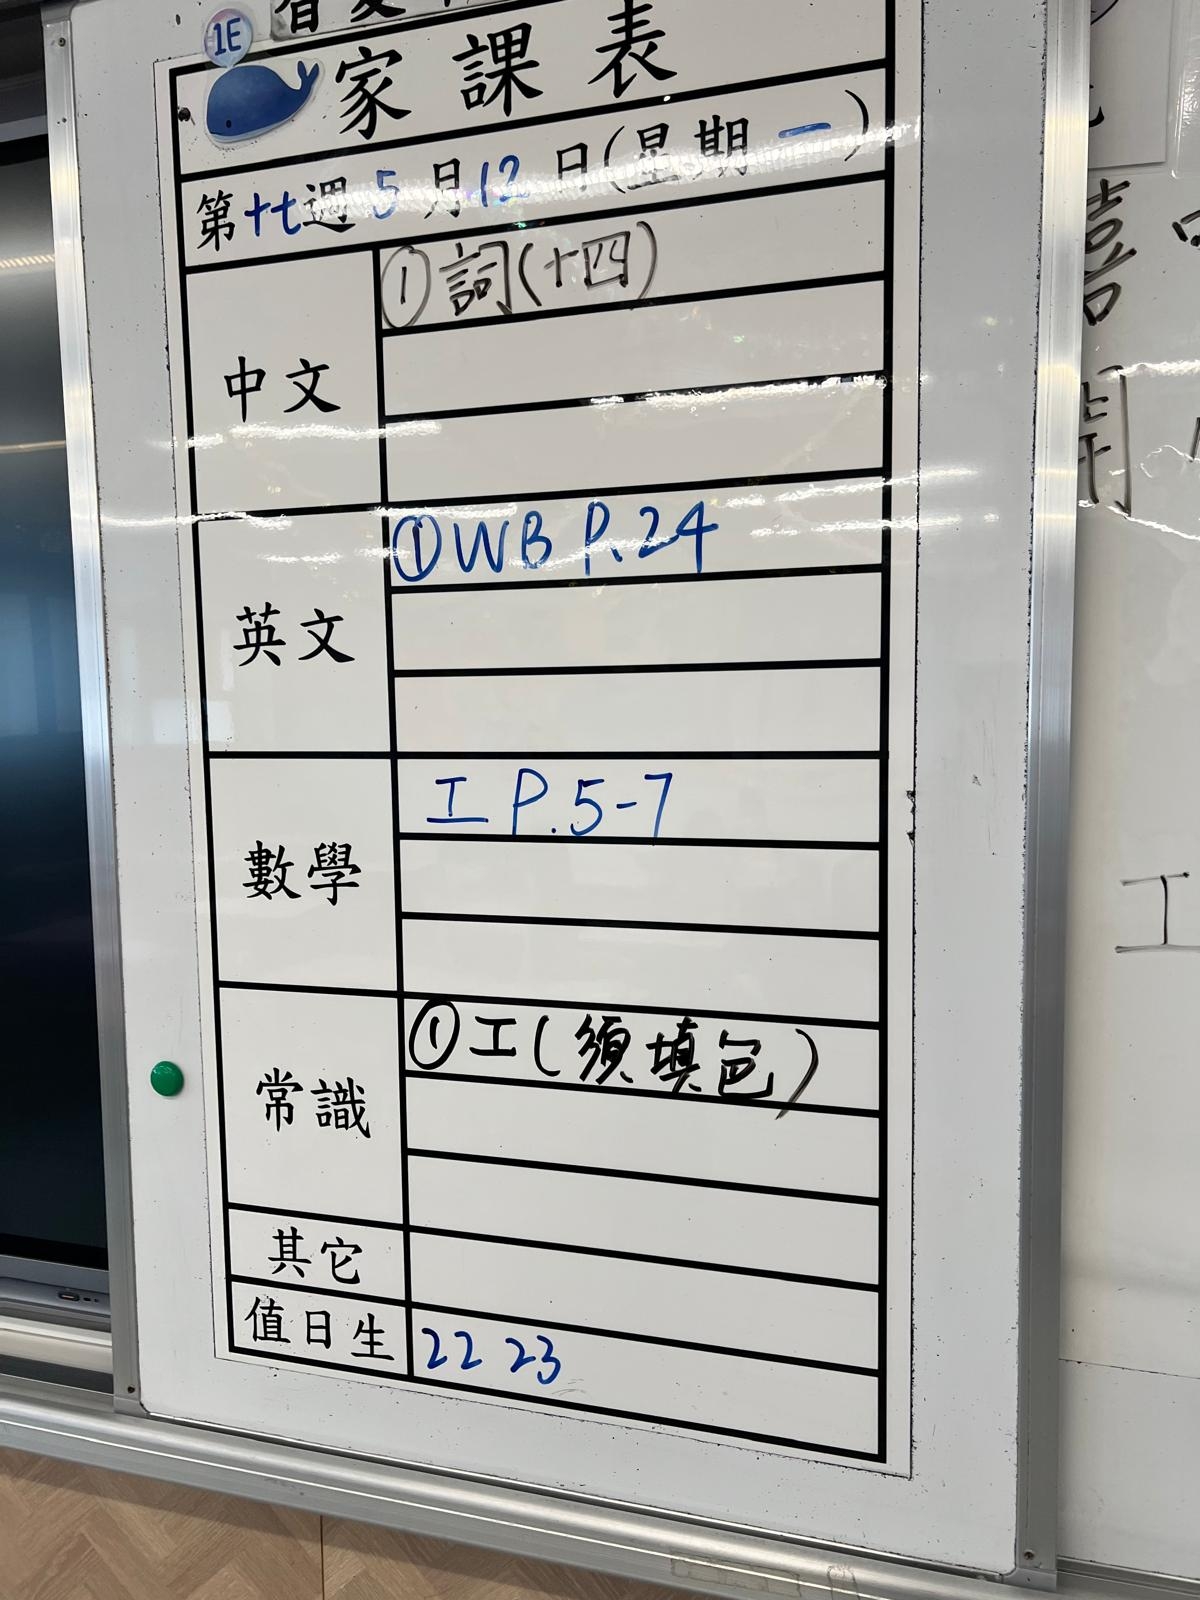 1E
家課表
第十七週 5月12日(星期一)
中文
①詞(十四)
英文
①WB P.24
數學
工 P.5-7
常識
①工(須填色)
其它
值日生
22 23
工